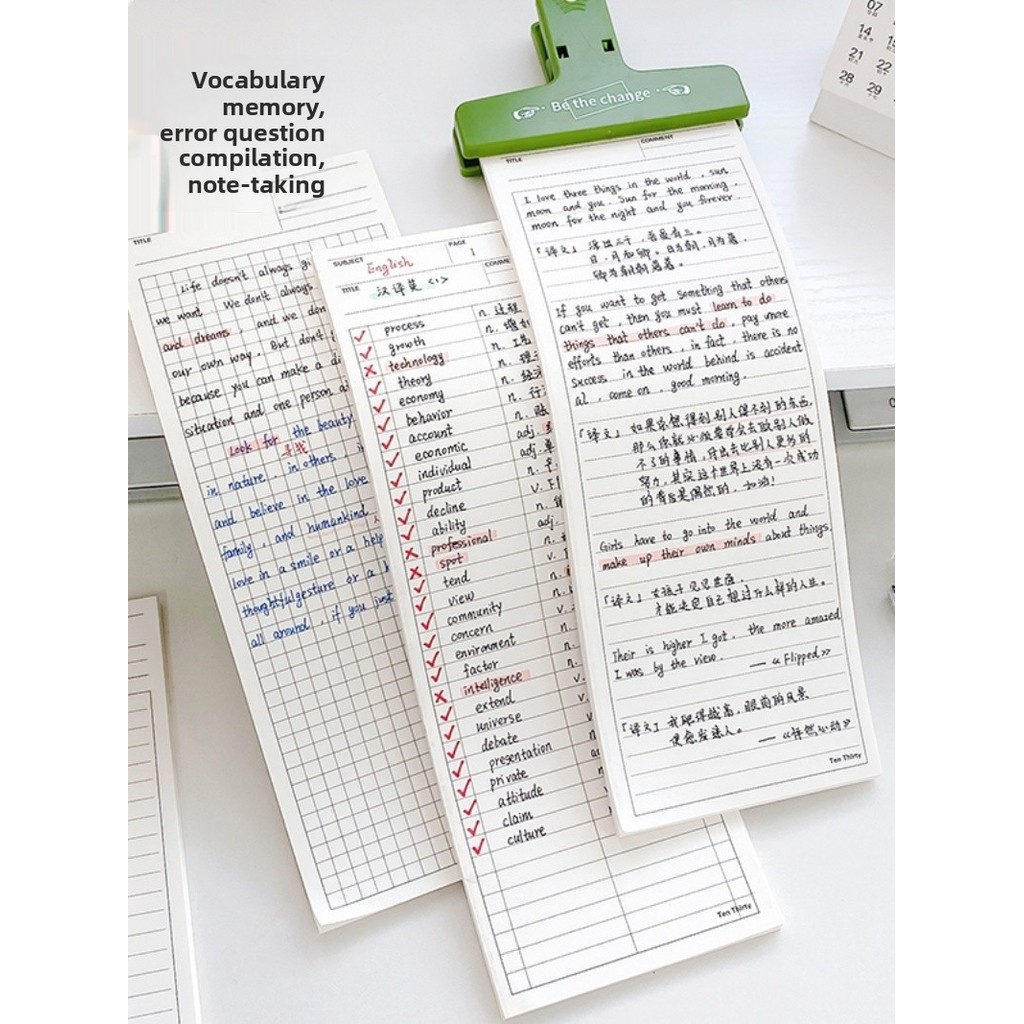 Vocabulary
memory,
error question
compilation,
note-taking
Be the change
07
14
21
22
28
29
TITLE
Life doesn't always
we want. We don't always
and dreams, and we don
our own way. But don't
because you can make a di
situation and one person a
Look for the beauty
寻找
in nature, in others, i
and believe in the love
family, and humankind
love in a smile or a help
thoughtful gesture or a
all around, if you just
SUBJECT
English
PAGE
1
TITLE
汉译英 <1>
COMME
process n. 过程
growth n. 增
technology n.
theory n. 理
economy n. 经济
behavior n. 行
account n. 账
economic adj.
individual adj.
product n.
decline v.
ability n.
professional adj.
spot n.
tend v.
view n.
community n.
concern v.
environment n.
factor n.
intelligence n.
extend v.
universe n.
debate v.
presentation n.
private
attitude
claim
culture
Ten Thirty
TITLE
COMMENT
I love three things in the world, sun
moon and you. Sun for the morning,
moon for the night and you forever.
「译文」浮世三千,吾爱有三。
日,月和卿。日为朝,月为暮。
卿为朝朝暮暮。
If you want to get something that others
can't get, then you must learn to do
things that others can't do, pay more
efforts than others, in fact, there is no
success in the world behind is accident
al, come on, good morning.
「译文」如果你想得到别人得不到的东西,
那么你就必须要学会去做别人做
不了的事情,付出去比别人更多的
努力,其实这个世界上没有一次成功
的背后是偶然的,加油!
Girls have to go into the world and
make up their own minds about things.
「译文」女孩子见见世面,
才能决定自己想过什么样的人生。
Their is higher I got, the more amazed
I was by the view. —《Flipped》
「译文」我爬得越高,眼前的风景
便愈发迷人。—《怦然心动》
Ten Thirty